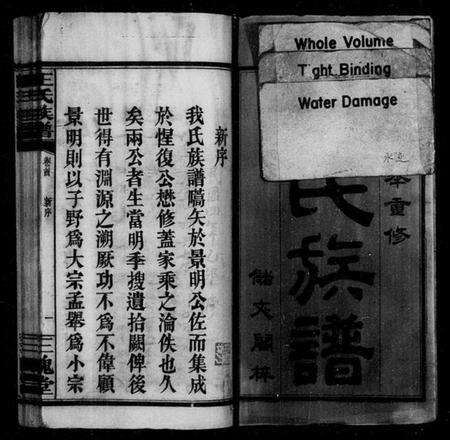 Whole Volume
Tight Binding
Water Damage
重修
氏族譜
新序
我氏族譜嚆矢於景明公佐而集成
於惺復公懋修蓋家乘之淪佚也久
矣兩公者生當明季搜遺拾闕俾後
世得有淵源之溯厥功不為不偉顧
景明則以子野為大宗孟舉為小宗
王氏族譜
卷首
新序
一
三槐堂